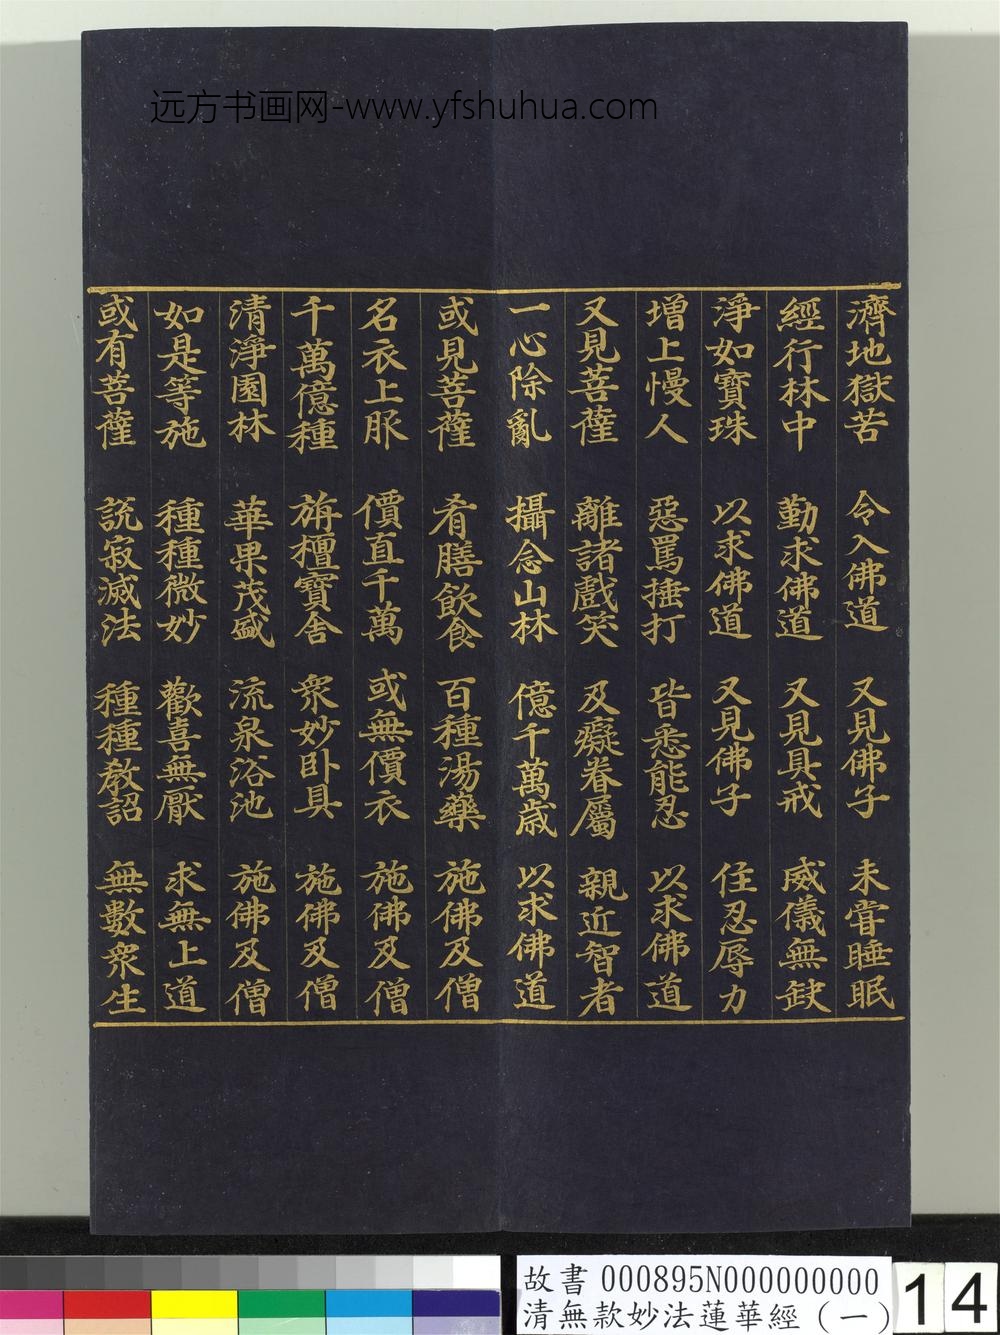 远方书画网-www.yfshuhua.com
濟地獄苦 令入佛道 又見佛子 未嘗睡眠
經行林中 勤求佛道 又見具戒 威儀無缺
淨如寶珠 以求佛道 又見佛子 住忍辱力
增上慢人 惡罵捶打 皆悉能忍 以求佛道
又見菩薩 離諸戲笑 及癡眷屬 親近智者
一心除亂 攝念山林 億千萬歲 以求佛道
或見菩薩 肴膳飲食 百種湯藥 施佛及僧
名衣上服 價直千萬 或無價衣 施佛及僧
千萬億種 旃檀寶舍 衆妙卧具 施佛及僧
清淨園林 華果茂盛 流泉浴池 施佛及僧
如是等施 種種微妙 歡喜無厭 求無上道
或有菩薩 說寂滅法 種種教詔 無數衆生
故書 000895N000000000
清無款妙法蓮華經（一）
14